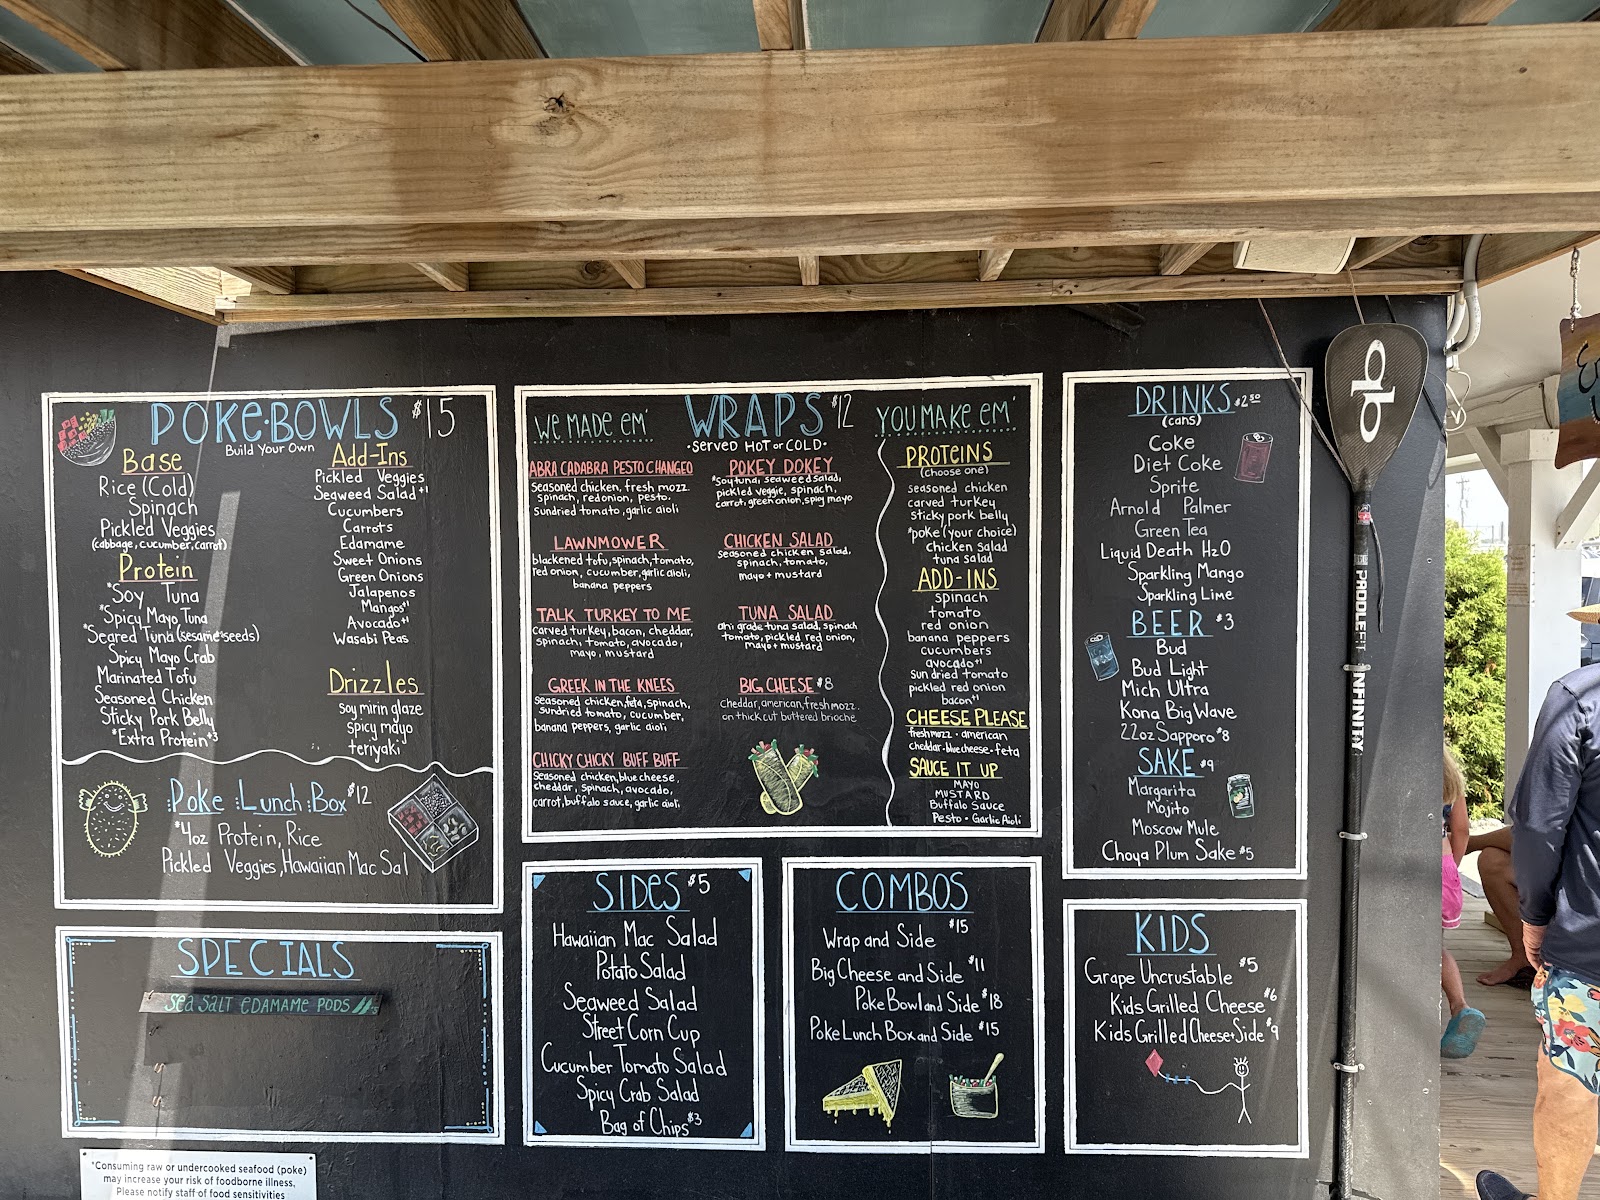 POKE•BOWLS $15
Build Your Own
Base
Rice (Cold)
Spinach
Pickled Veggies
(cabbage, cucumber, carrot)
Protein
*Soy Tuna
*Spicy Mayo Tuna
*Seared Tuna (sesame*seeds)
Spicy Mayo Crab
Marinated Tofu
Seasoned Chicken
Sticky Pork Belly
*Extra Protein+3
Add-Ins
Pickled Veggies
Seaweed Salad+1
Cucumbers
Carrots
Edamame
Sweet Onions
Green Onions
Jalapenos
Mangos+1
Avocado+1
Wasabi Peas
Drizzles
soy mirin glaze
spicy mayo
teriyaki
Poke Lunch Box $12
*4oz Protein, Rice
Pickled Veggies, Hawaiian Mac Sal
SPECIALS
Sea Salt EDAMAME PODS
*Consuming raw or undercooked seafood (poke)
may increase your risk of foodborne illness,
Please notify staff of food sensitivities
WRAPS $12
•Served HOT or COLD•
WE MADE EM'
ABRA CADABRA PESTO CHANGEO
seasoned chicken, fresh mozz.
spinach, red onion, pesto.
sundried tomato, garlic aioli
LAWNMOWER
blackened tofu, spinach, tomato,
red onion, cucumber, garlic aioli,
banana peppers
TALK TURKEY TO ME
carved turkey, bacon, cheddar,
spinach, tomato, avocado,
mayo, mustard
GREEK IN THE KNEES
seasoned chicken, feta, spinach,
sundried tomato, cucumber,
banana peppers, garlic aioli
CHICKY CHICKY BUFF BUFF
seasoned chicken, blue cheese,
cheddar, spinach, avocado,
carrot, buffalo sauce, garlic aioli
POKEY DOKEY
*Soy tuna, seaweed salad,
pickled veggie, spinach,
carrot, green onion, spicy mayo
CHICKEN SALAD
seasoned chicken salad,
spinach, tomato,
mayo + mustard
TUNA SALAD
ahi grade tuna salad, spinach
tomato, pickled red onion,
mayo + mustard
BIG CHEESE $8
cheddar, american, fresh mozz.
on thick cut buttered brioche
YOU MAKE EM'
PROTEINS
(choose one)
seasoned chicken
carved turkey
sticky pork belly
*poke (your choice)
chicken salad
tuna salad
ADD-INS
spinach
tomato
red onion
banana peppers
cucumbers
avocado+1
sun dried tomato
pickled red onion
bacon+1
CHEESE PLEASE
fresh mozz • american
cheddar • blue cheese • feta
SAUCE IT UP
MAYO
MUSTARD
Buffalo Sauce
Pesto • Garlic Aioli
SIDES $5
Hawaiian Mac Salad
Potato Salad
Seaweed Salad
Street Corn Cup
Cucumber Tomato Salad
Spicy Crab Salad
Bag of Chips $3
COMBOS
Wrap and Side $15
Big Cheese and Side $11
Poke Bowl and Side $18
Poke Lunch Box and Side $15
DRINKS $2.50
(cans)
Coke
Diet Coke
Sprite
Arnold Palmer
Green Tea
Liquid Death H2O
Sparkling Mango
Sparkling Lime
BEER $3
Bud
Bud Light
Mich Ultra
Kona Big Wave
22oz Sapporo $8
SAKE $9
Margarita
Mojito
Moscow Mule
Choya Plum Sake $5
KIDS
Grape Uncrustable $5
Kids Grilled Cheese $6
Kids Grilled Cheese+Side $9
PADDLEFIT INFINITY